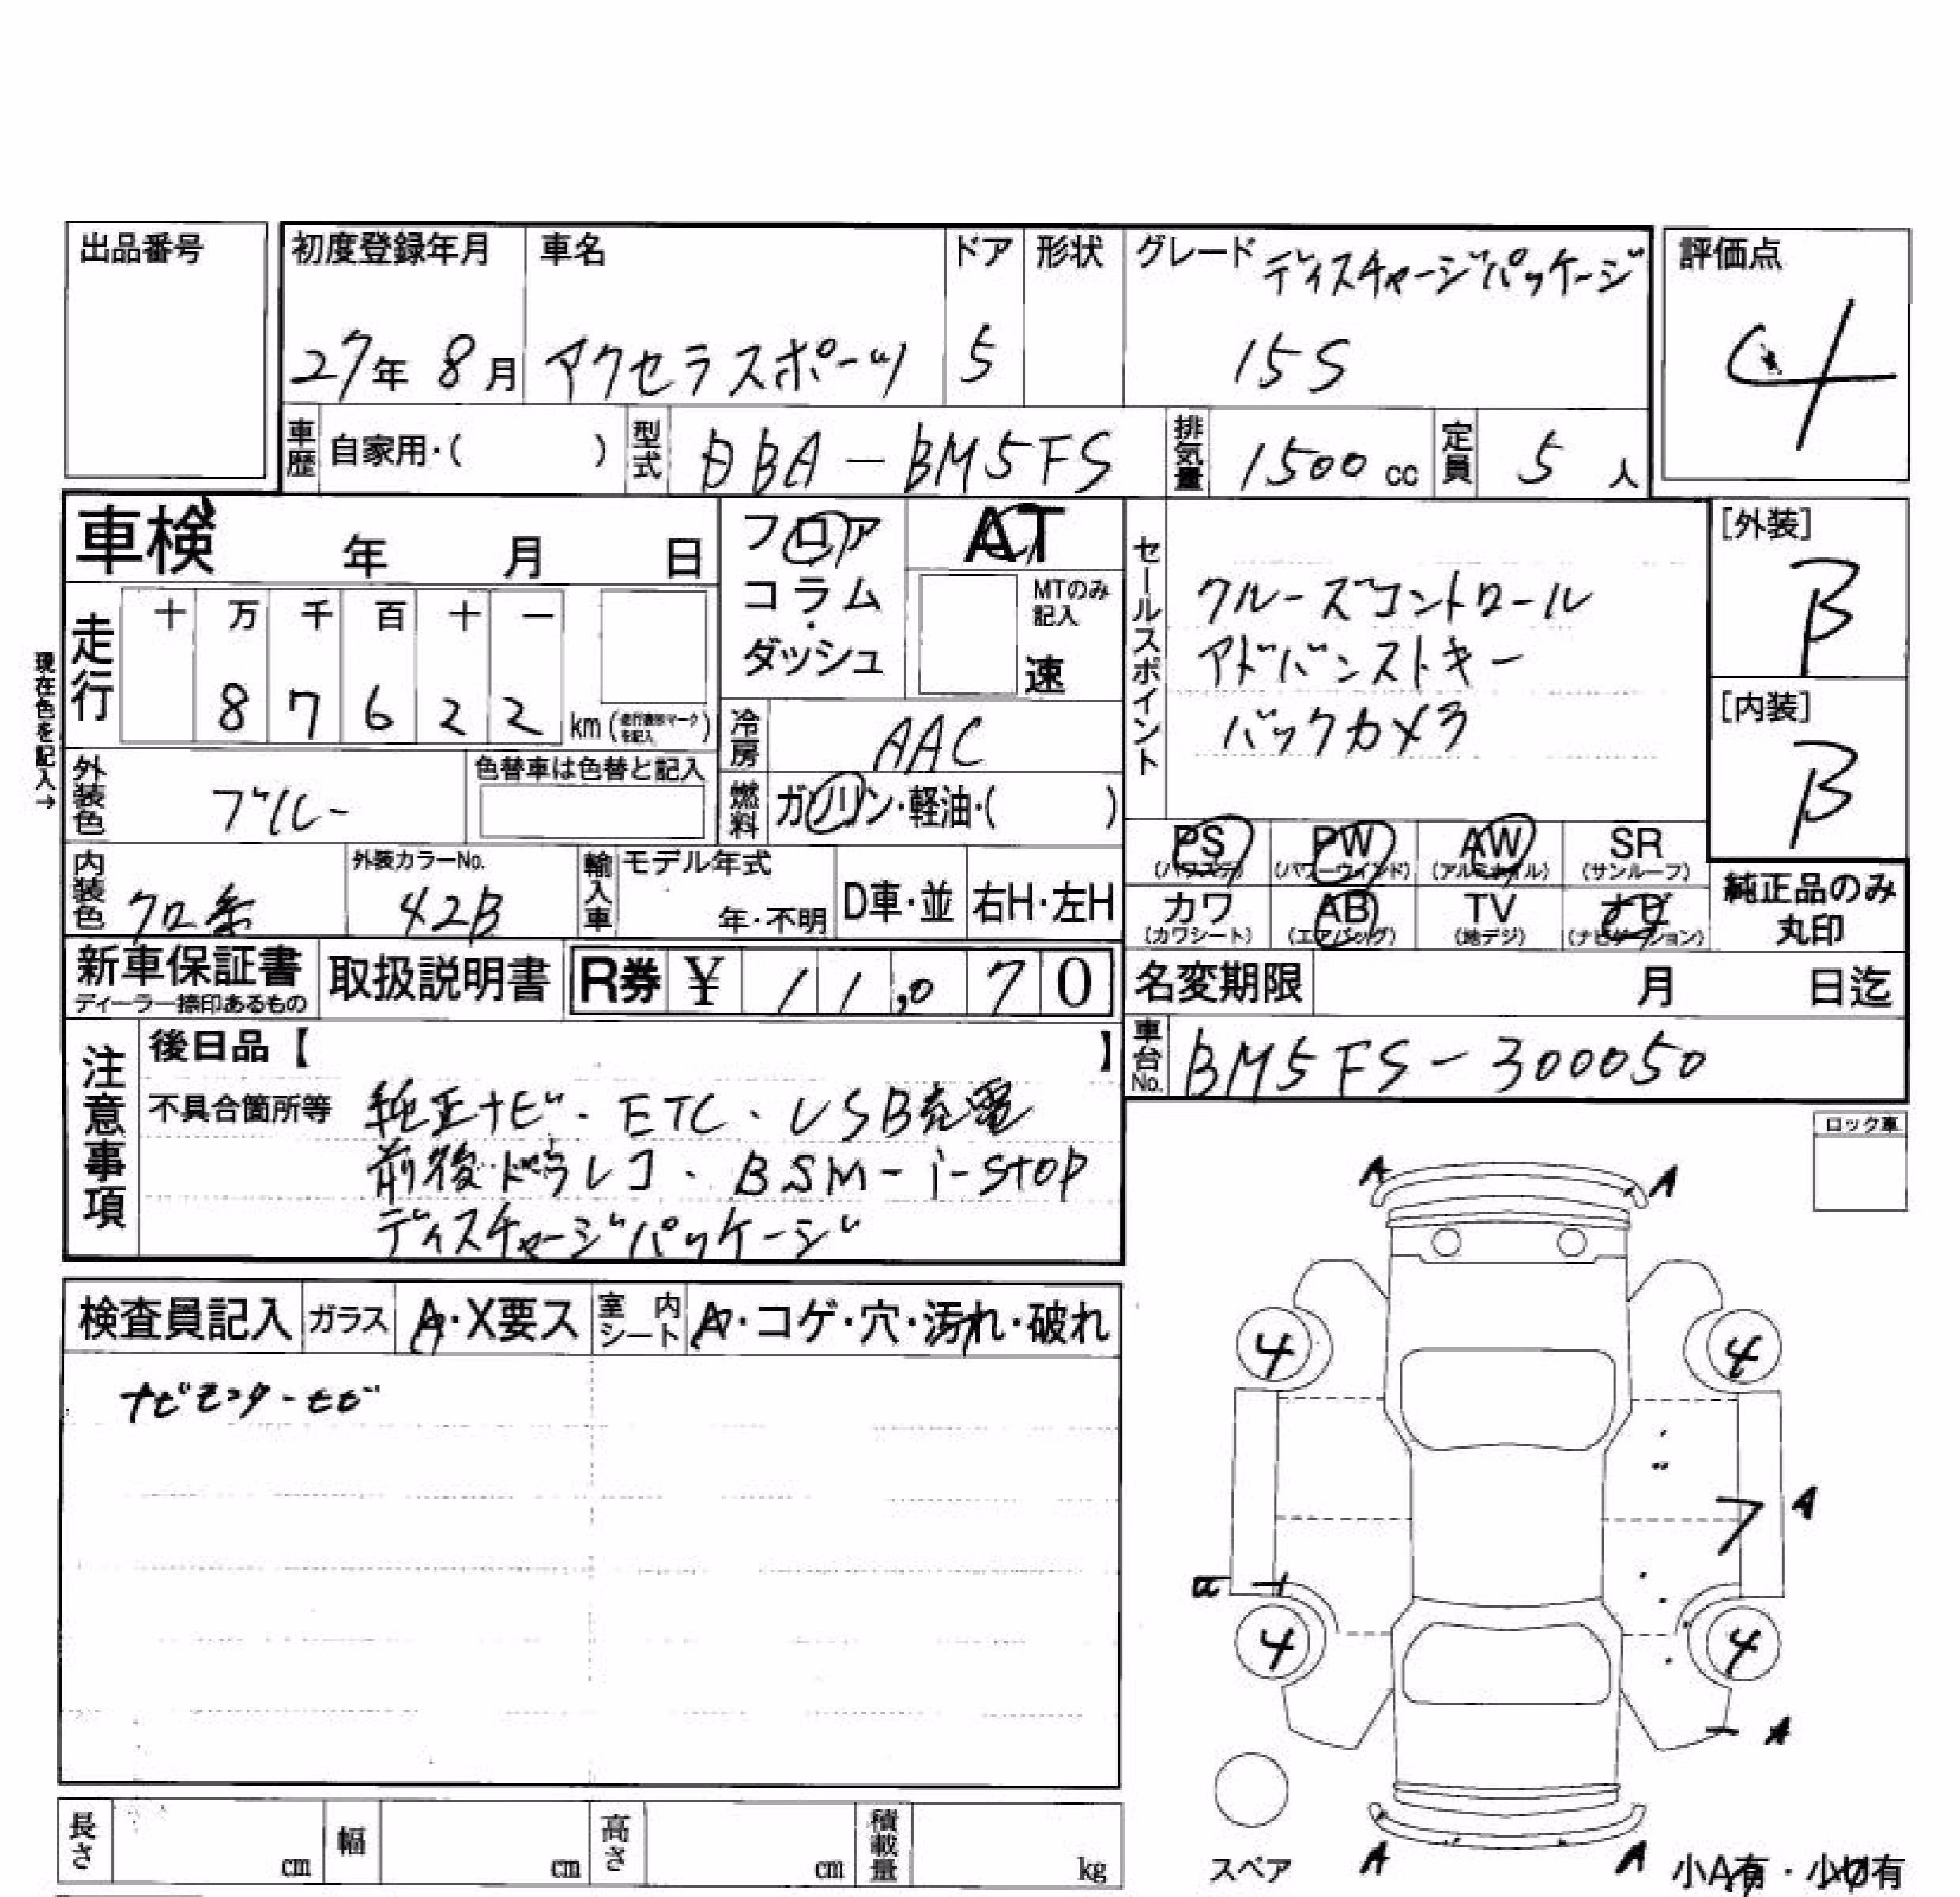 出品番号
初度登録年月 車名 ドア 形状 グレード ディスチャージパッケージ 評価点
27年 8月 アクセラスポーツ 5 15S 4
車歴 自家用・( ) 型式 DBA-BM5FS 排気量 1500 cc 定員 5 人
車検 年 月 日
フロア
コラム・
ダッシュ
AT
MTのみ
記入
速
セールスポイント
クルーズコントロール
アドバンストキー
バックカメラ
[外装]
B
[内装]
B
現在色を記入→
走行 十 万 千 百 十 一
8 7 6 2 2 km
冷房 AAC
外装色 ブルー 色替車は色替と記入
燃料 ガソリン・軽油・( )
PS (パワステ) PW (パワーウインド) AW (アルミホイル) SR (サンルーフ)
カワ (カワシート) AB (エアバッグ) TV (地デジ) ナビ (ナビゲーション)
純正品のみ
丸印
内装色 クロ系 外装カラーNo. 42B 輸入車 モデル年式 年・不明 D車・並 右H・左H
新車保証書 取扱説明書 R券 ¥ 11,070
ディーラー捺印あるもの
名変期限 月 日迄
車台No. BM5FS-300050
注意事項
後日品【 】
不具合箇所等 純正ナビ・ETC・USB充電
前後ドラレコ・BSM-i-stop
ディスチャージパッケージ
ロック車
検査員記入 ガラス A・X要ス 室内シート A・コゲ・穴・汚れ・破れ
A A
4 4
フ A
4 4
A
A A
スペア
小A有・小U有
長さ cm 幅 cm 高さ cm 積載量 kg